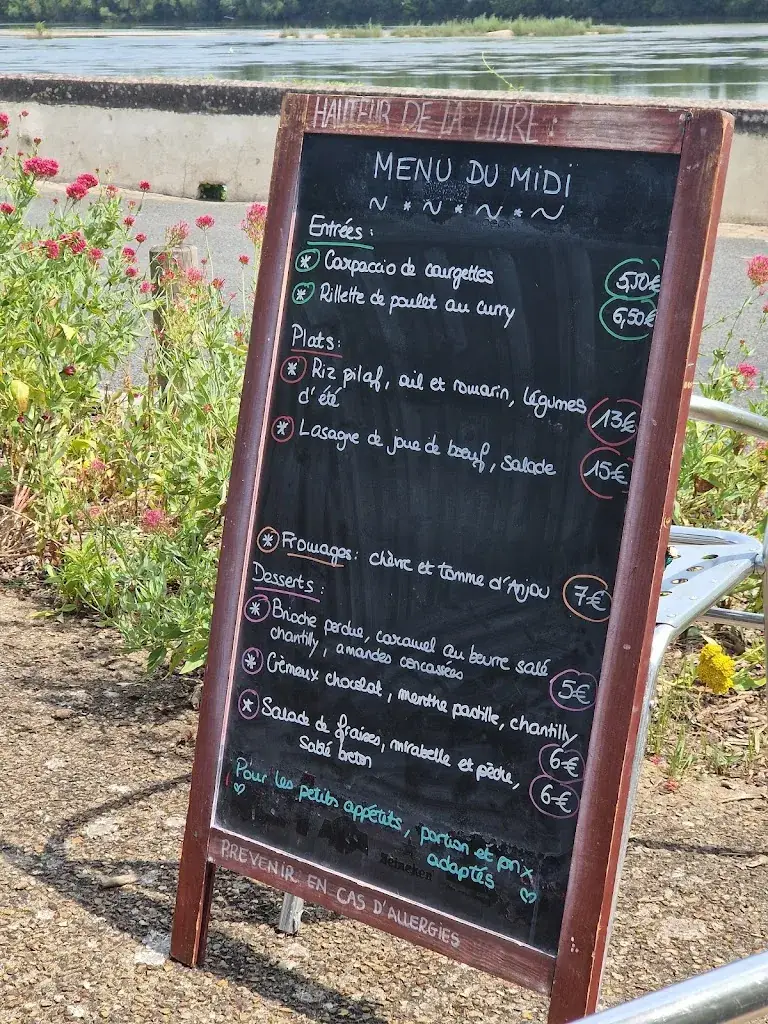 HAUTEUR DE LA LOIRE :
MENU DU MIDI
~ * ~ * ~ * ~
Entrées :
* Carpaccio de courgettes 5,50€
* Rillette de poulet au curry 6,50€
Plats :
* Riz pilaf, ail et romarin, légumes
d'été 13€
* Lasagne de joue de bœuf, salade 15€
* Fromages : chèvre et tomme d'Anjou 7€
Desserts :
* Brioche perdue, caramel au beurre salé
chantilly, amandes concassées 5€
* Crémeux chocolat, menthe pastille, chantilly 6€
* Salade de fraises, mirabelle et pêche,
Sablé breton 6€
Pour les petits appétits, portion et prix
adaptés
Heineken
PREVENIR EN CAS D'ALLERGIES